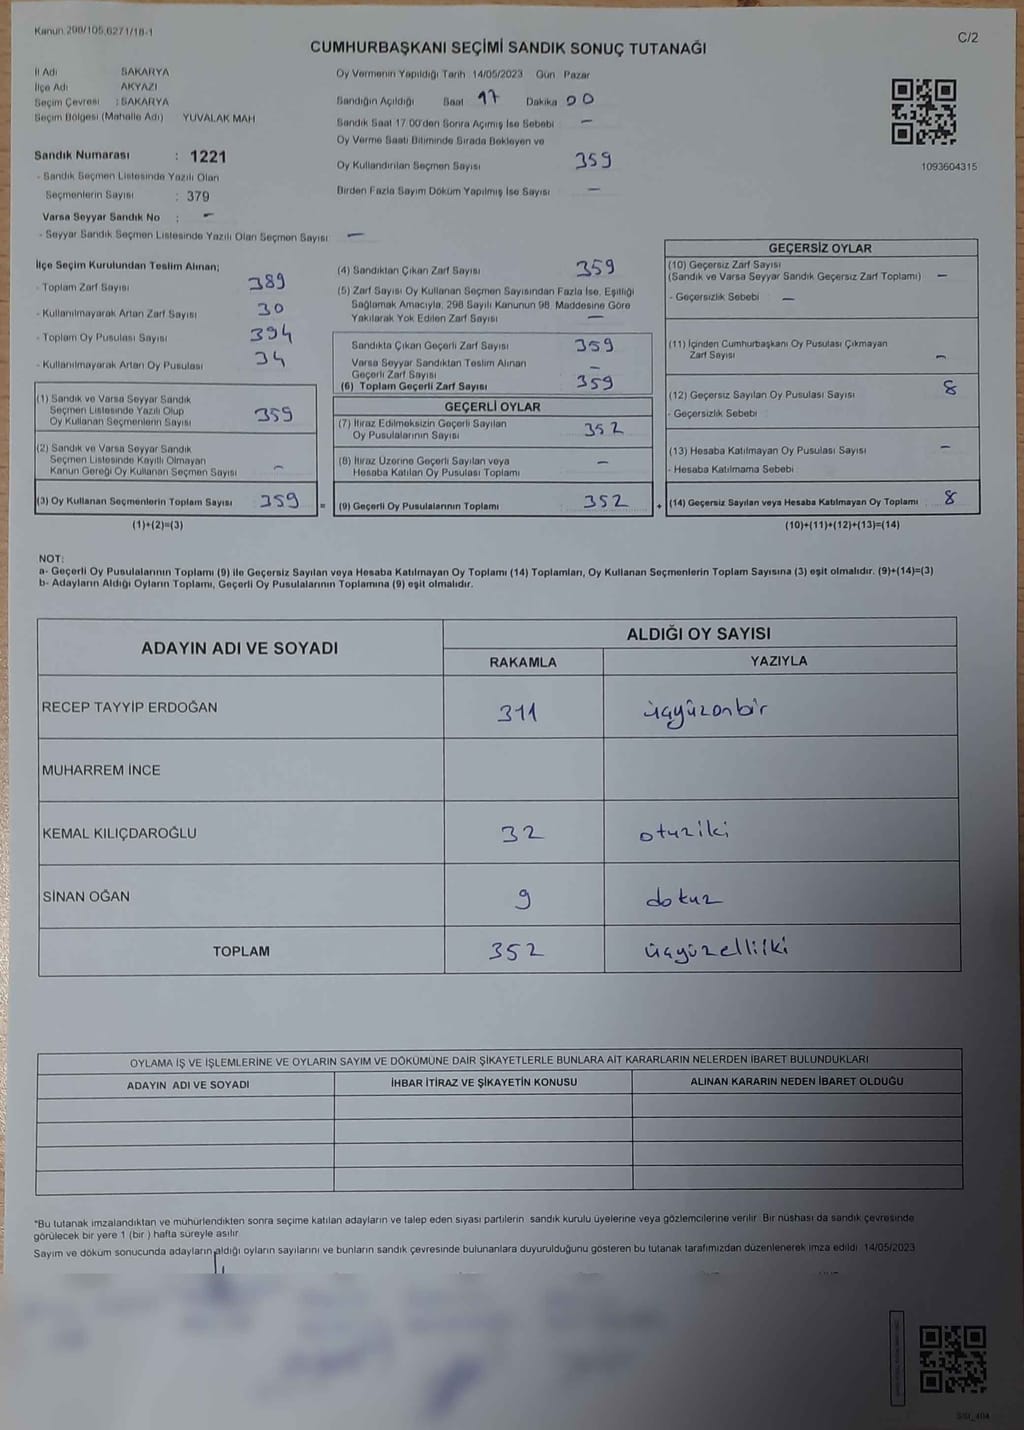 Kanun 298/105,6271/18-1
C/2
CUMHURBAŞKANI SEÇİMİ SANDIK SONUÇ TUTANAĞI
İl Adı SAKARYA
İlçe Adı AKYAZI
Seçim Çevresi : SAKARYA
Seçim Bölgesi (Mahalle Adı) YUVALAK MAH
Sandık Numarası : 1221
- Sandık Seçmen Listesinde Yazılı Olan
Seçmenlerin Sayısı : 379
Varsa Seyyar Sandık No : -
- Seyyar Sandık Seçmen Listesinde Yazılı Olan Seçmen Sayısı -
Oy Vermenin Yapıldığı Tarih 14/05/2023 Gün Pazar
Sandığın Açıldığı Saat 17 Dakika 00
Sandık Saat 17.00'den Sonra Açımış İse Sebebi -
Oy Verme Saati Bitiminde Sırada Bekleyen ve
Oy Kullandırılan Seçmen Sayısı 359
Birden Fazla Sayım Döküm Yapılmış İse Sayısı -
1093604315
İlçe Seçim Kurulundan Teslim Alınan;
- Toplam Zarf Sayısı 389
- Kullanılmayarak Artan Zarf Sayısı 30
- Toplam Oy Pusulası Sayısı 394
- Kullanılmayarak Artan Oy Pusulası 34
(1) Sandık ve Varsa Seyyar Sandık
Seçmen Listesinde Yazılı Olup
Oy Kullanan Seçmenlerin Sayısı 359
(2) Sandık ve Varsa Seyyar Sandık
Seçmen Listesinde Kayıtlı Olmayan
Kanun Gereği Oy Kullanan Seçmen Sayısı -
(3) Oy Kullanan Seçmenlerin Toplam Sayısı 359
(1)+(2)=(3)
(4) Sandıktan Çıkan Zarf Sayısı 359
(5) Zarf Sayısı Oy Kullanan Seçmen Sayısından Fazla İse, Eşitliği
Sağlamak Amacıyla, 298 Sayılı Kanunun 98. Maddesine Göre
Yakılarak Yok Edilen Zarf Sayısı -
Sandıkta Çıkan Geçerli Zarf Sayısı 359
Varsa Seyyar Sandıktan Teslim Alınan
Geçerli Zarf Sayısı -
(6) Toplam Geçerli Zarf Sayısı 359
GEÇERLİ OYLAR
(7) İtiraz Edilmeksizin Geçerli Sayılan
Oy Pusulalarının Sayısı 352
(8) İtiraz Üzerine Geçerli Sayılan veya
Hesaba Katılan Oy Pusulası Toplamı -
= (9) Geçerli Oy Pusulalarının Toplamı 352
GEÇERSİZ OYLAR
(10) Geçersiz Zarf Sayısı
(Sandık ve Varsa Seyyar Sandık Geçersiz Zarf Toplamı) -
- Geçersizlik Sebebi -
(11) İçinden Cumhurbaşkanı Oy Pusulası Çıkmayan
Zarf Sayısı -
(12) Geçersiz Sayılan Oy Pusulası Sayısı 8
- Geçersizlik Sebebi
(13) Hesaba Katılmayan Oy Pusulası Sayısı -
- Hesaba Katılmama Sebebi
+ (14) Geçersiz Sayılan veya Hesaba Katılmayan Oy Toplamı 8
(10)+(11)+(12)+(13)=(14)
NOT:
a- Geçerli Oy Pusulalarının Toplamı (9) ile Geçersiz Sayılan veya Hesaba Katılmayan Oy Toplamı (14) Toplamları, Oy Kullanan Seçmenlerin Toplam Sayısına (3) eşit olmalıdır. (9)+(14)=(3)
b- Adayların Aldığı Oyların Toplamı, Geçerli Oy Pusulalarının Toplamına (9) eşit olmalıdır.
ADAYIN ADI VE SOYADI
ALDIĞI OY SAYISI
RAKAMLA YAZIYLA
RECEP TAYYİP ERDOĞAN 311 üçyüzonbir
MUHARREM İNCE
KEMAL KILIÇDAROĞLU 32 otuziki
SİNAN OĞAN 9 dokuz
TOPLAM 352 üçyüzelliiki
OYLAMA İŞ VE İŞLEMLERİNE VE OYLARIN SAYIM VE DÖKÜMÜNE DAİR ŞİKAYETLERLE BUNLARA AİT KARARLARIN NELERDEN İBARET BULUNDUKLARI
ADAYIN ADI VE SOYADI İHBAR İTİRAZ VE ŞİKAYETİN KONUSU ALINAN KARARIN NEDEN İBARET OLDUĞU
*Bu tutanak imzalandıktan ve mühürlendikten sonra seçime katılan adayların ve talep eden siyasi partilerin sandık kurulu üyelerine veya gözlemcilerine verilir. Bir nüshası da sandık çevresinde
görülecek bir yere 1 (bir) hafta süreyle asılır
Sayım ve döküm sonucunda adayların aldığı oyların sayılarını ve bunların sandık çevresinde bulunanlara duyurulduğunu gösteren bu tutanak tarafımızdan düzenlenerek imza edildi. 14/05/2023